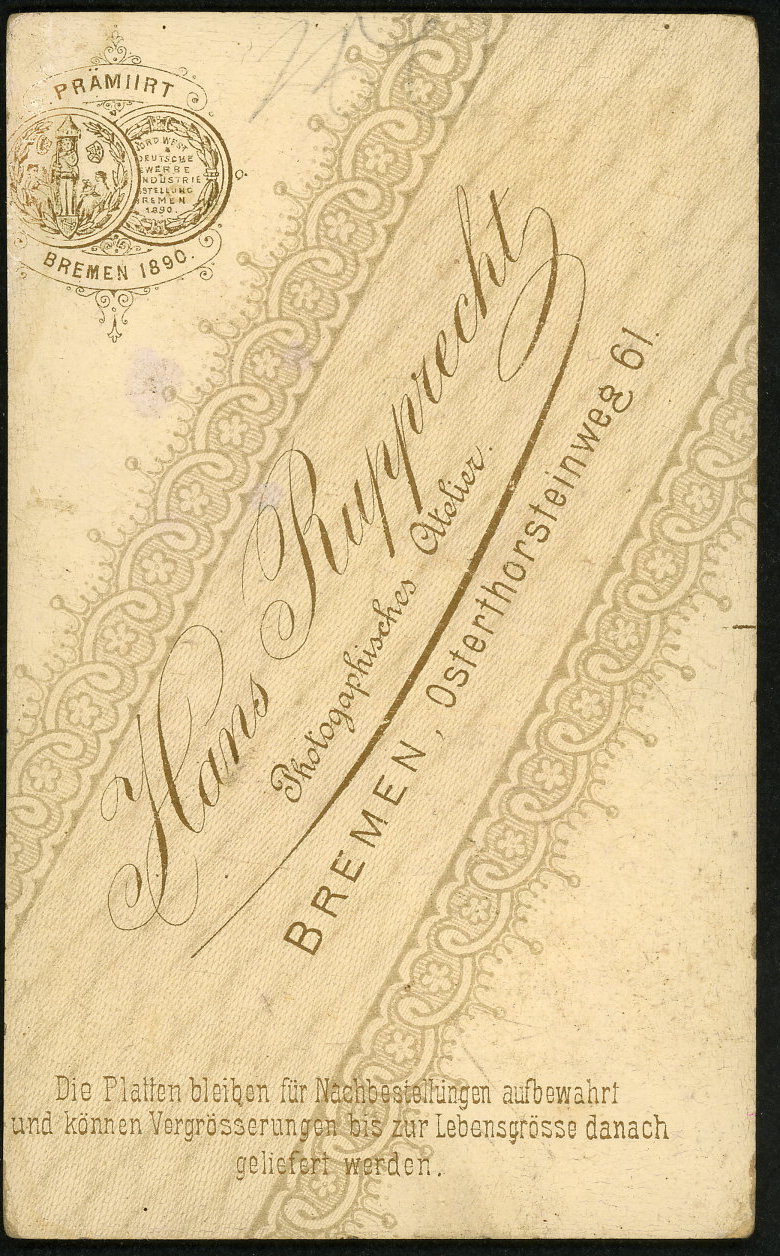 PRÄMIIRT
NORD WEST
DEUTSCHE
EWERBE
INDUSTRIE
STELLUNG
BREMEN
1890.
BREMEN 1890.
Hans Rupprecht
Photogaphisches Atelier.
BREMEN, Osterthorsteinweg 61.
Die Platten bleiben für Nachbestellungen aufbewahrt
und können Vergrösserungen bis zur Lebensgrösse danach
geliefert werden.